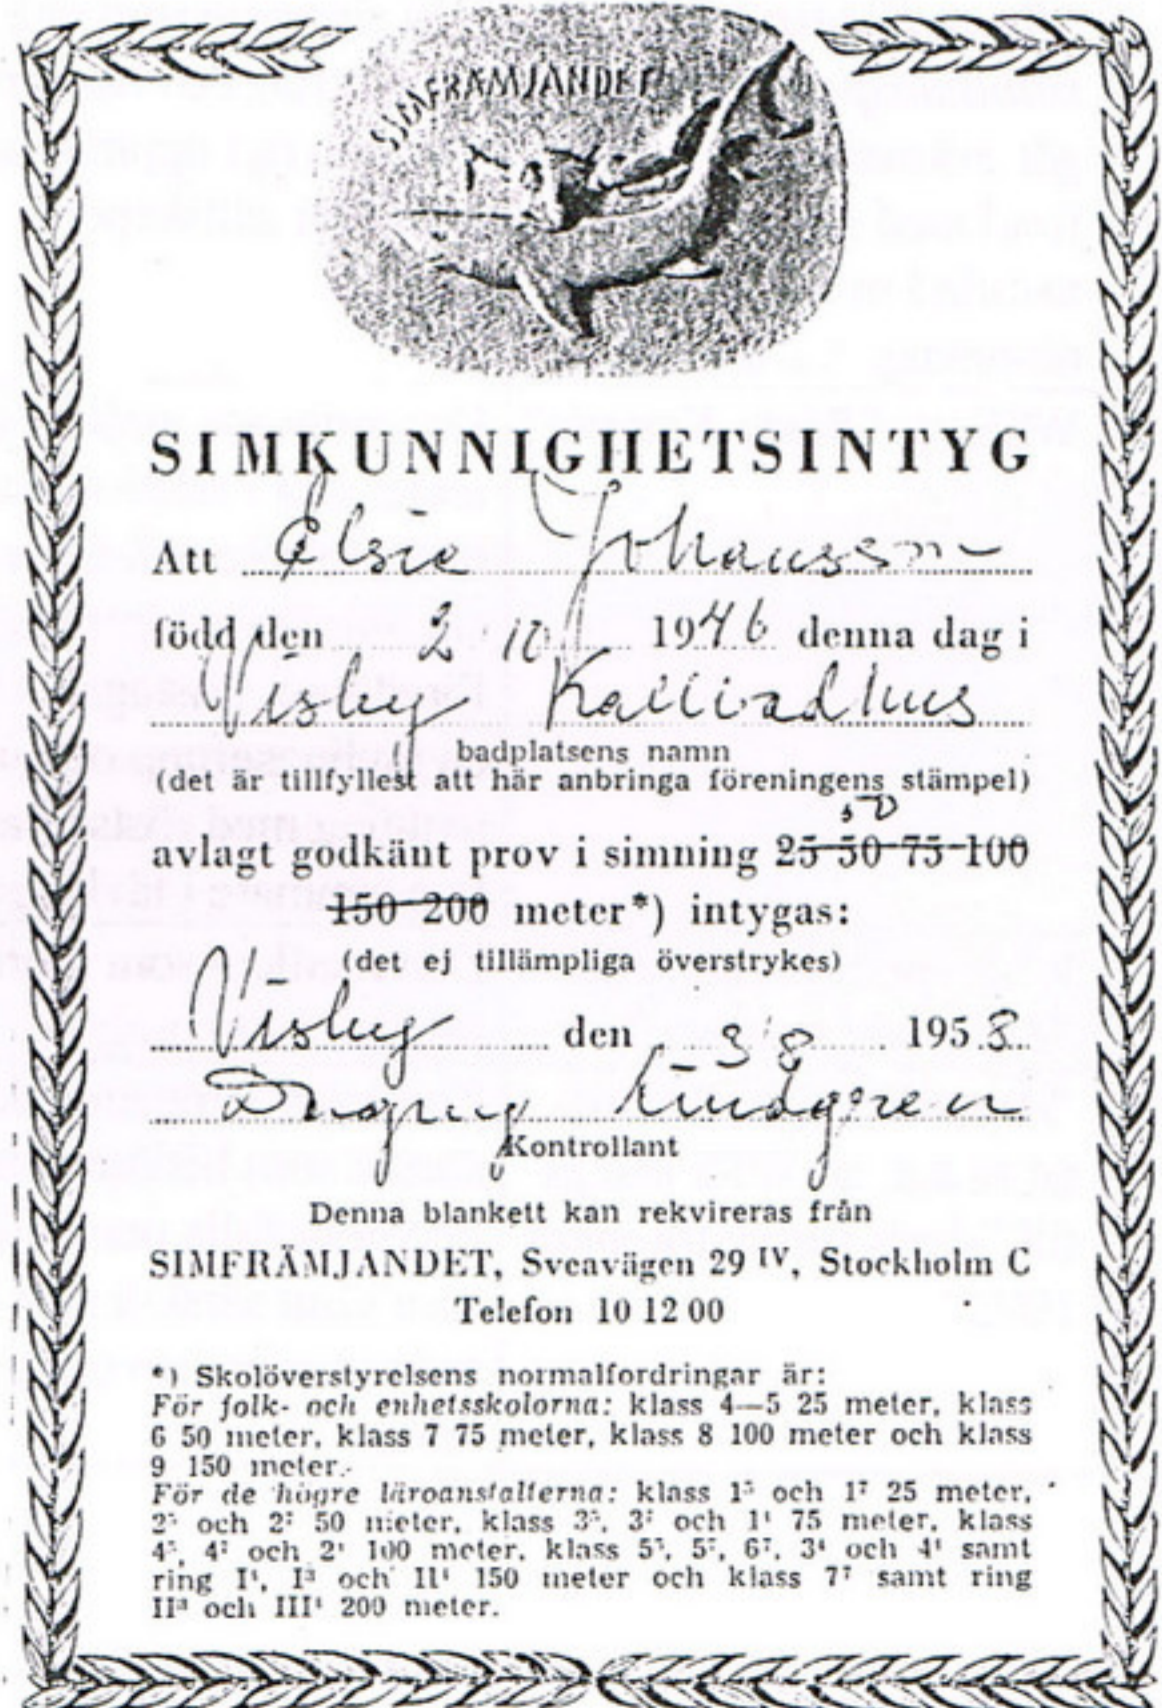 SIMFRÄMJANDET
SIMKUNNIGHETSINTYG
Att Elsie Johansson
född den 2 10 1946 denna dag i
Visby Kallbadhus
badplatsens namn
(det är tillfyllest att här anbringa föreningens stämpel)
50
avlagt godkänt prov i simning 25 50 75 100
150 200 meter*) intygas:
(det ej tillämpliga överstrykes)
Visby den 3/8 1958
Lindgren
Kontrollant
Denna blankett kan rekvireras från
SIMFRÄMJANDET, Sveavägen 29 IV, Stockholm C
Telefon 10 12 00
*) Skolöverstyrelsens normalfordringar är:
För folk- och enhetsskolorna: klass 4—5 25 meter, klass
6 50 meter, klass 7 75 meter, klass 8 100 meter och klass
9 150 meter.
För de högre läroanstalterna: klass 1⁵ och 1⁷ 25 meter,
2⁵ och 2⁷ 50 meter, klass 3⁵, 3⁷ och 1⁴ 75 meter, klass
4⁵, 4⁷ och 2⁴ 100 meter, klass 5⁵, 5⁷, 6⁷, 3⁴ och 4⁴ samt
ring I⁴, I³ och II⁴ 150 meter och klass 7⁷ samt ring
II³ och III⁴ 200 meter.